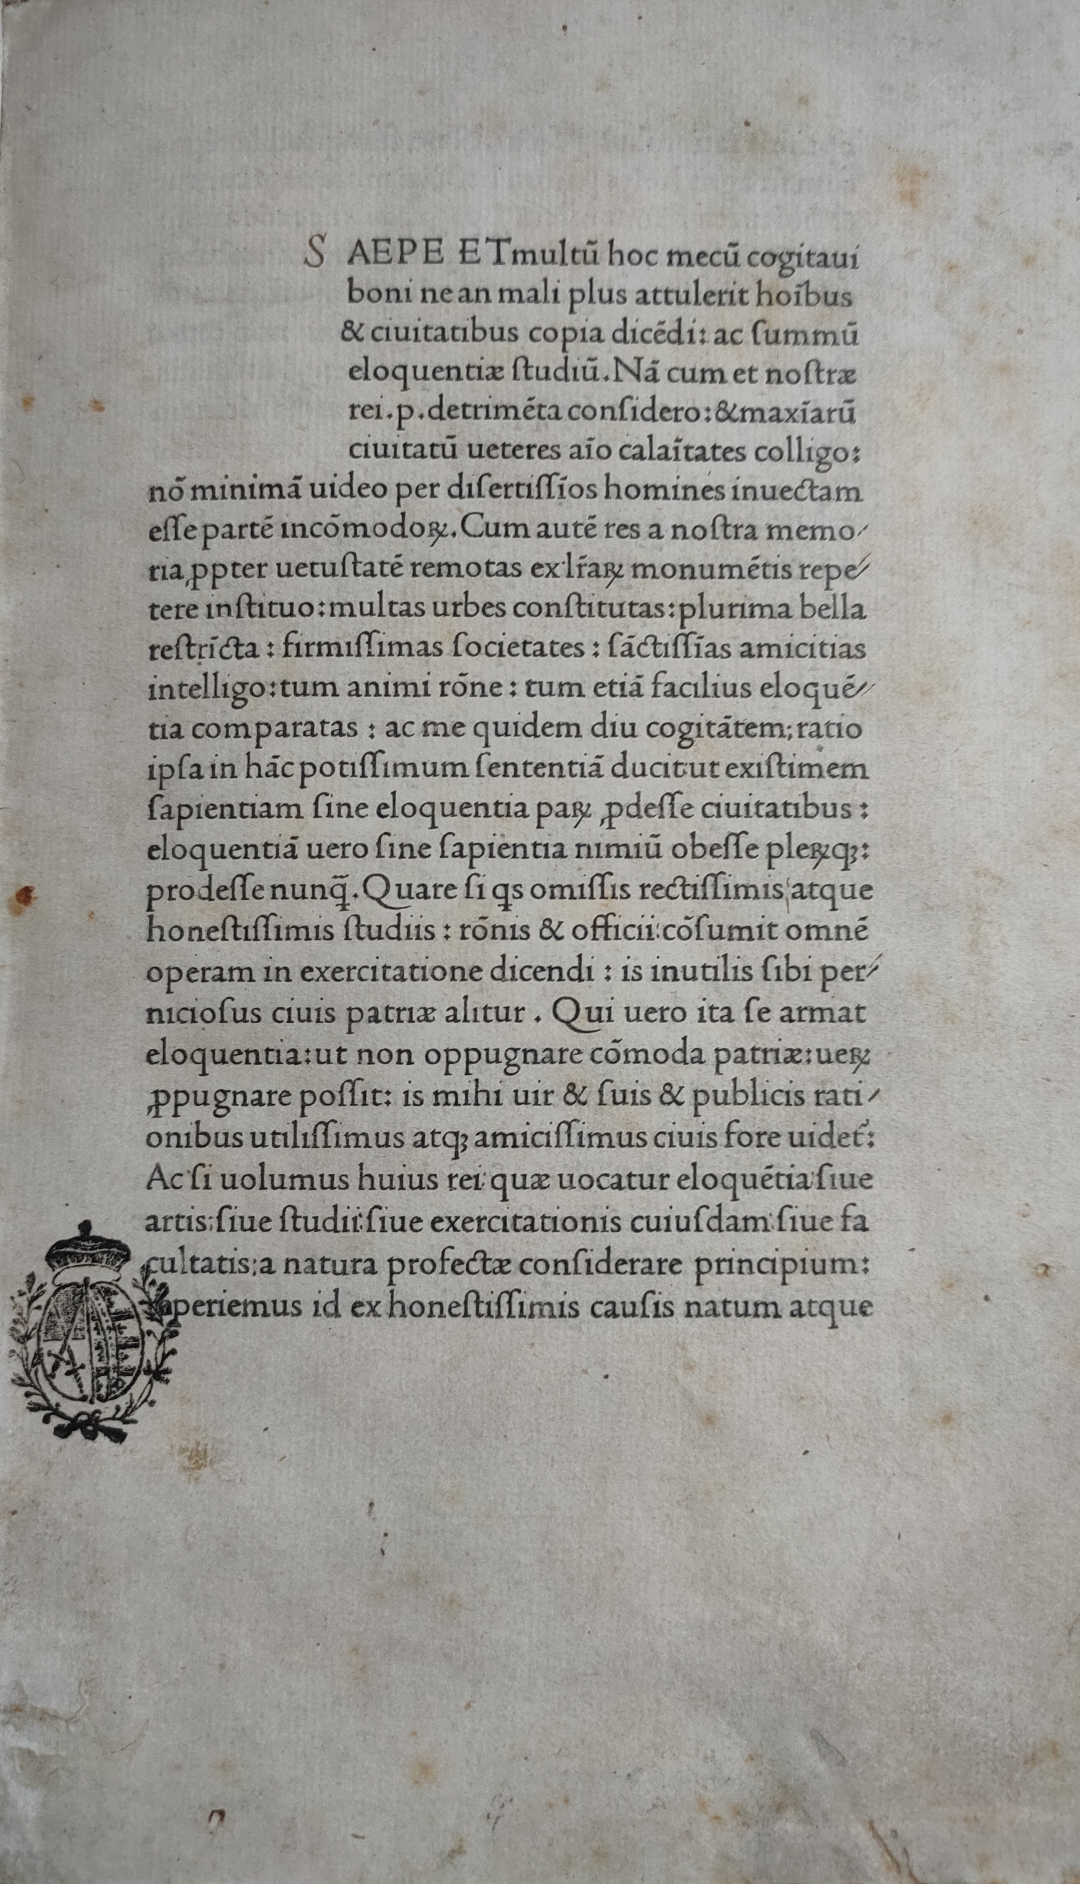 S AEPE ETmultū hoc mecū cogitaui
boni ne an mali plus attulerit hoībus
& ciuitatibus copia dicēdi: ac ſummū
eloquentiæ ſtudiū. Nā cum et noſtræ
rei.p.detrimēta conſidero:&maxīarū
ciuitatū ueteres aīo calaītates colligo:
nō minimā uideo per diſertiſſīos homines inuectam
eſſe partē incōmodoꝝ. Cum autē res a noſtra memo⸗
ria ꝓpter uetuſtatē remotas ex lr̄aꝝ monumētis repe⸗
tere inſtituo: multas urbes conſtitutas: plurima bella
reſtrīcta : firmiſſimas ſocietates : ſāctiſſīas amicitias
intelligo: tum animi rōne : tum etiā facilius eloquē⸗
tia comparatas : ac me quidem diu cogitātem; ratio
ipſa in hāc potiſſimum ſententiā ducit ut exiſtimem
ſapientiam ſine eloquentia paꝝ ꝓdeſſe ciuitatibus :
eloquentiā uero ſine ſapientia nimiū obeſſe pleꝝqꝫ:
prodeſſe nunq̄. Quare ſi qs omiſſis rectiſſimis atque
honeſtiſſimis ſtudiis : rōnis & officii: cōſumit omnē
operam in exercitatione dicendi : is inutilis ſibi per⸗
nicioſus ciuis patriæ alitur . Qui uero ita ſe armat
eloquentia: ut non oppugnare cōmoda patriæ: ueꝝ
ꝓpugnare poſſit: is mihi uir & ſuis & publicis rati⸗
onibus utiliſſimus atqꝫ amiciſſimus ciuis fore uidet᷑:
Ac ſi uolumus huius rei: quæ uocatur eloquētia: ſiue
artis: ſiue ſtudii: ſiue exercitationis cuiuſdam: ſiue fa
cultatis; a natura profectæ conſiderare principium:
reperiemus id ex honeſtiſſimis cauſis natum atque